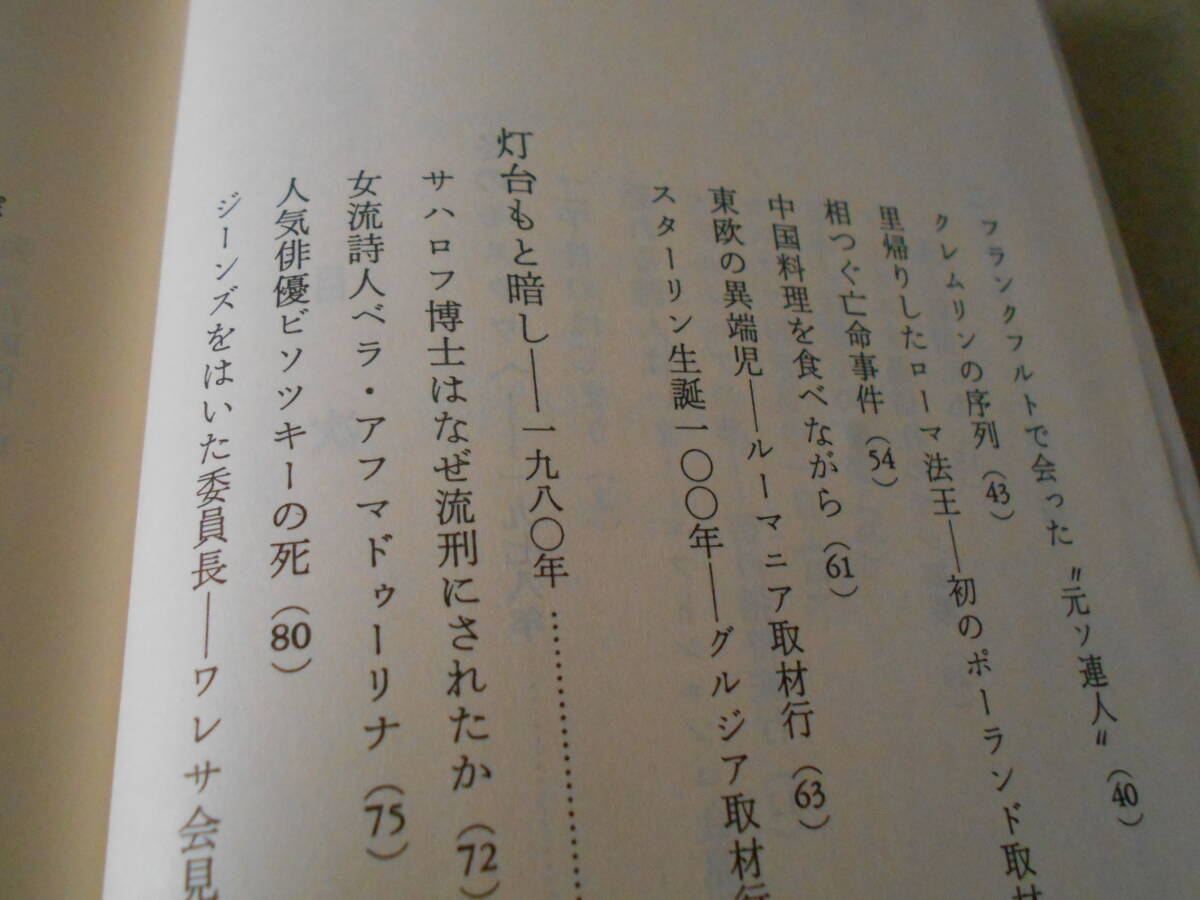 フランクフルトで会った〝元ソ連人〟(40)
クレムリンの序列(43)
里帰りしたローマ法王――初のポーランド取材
相つぐ亡命事件(54)
中国料理を食べながら(61)
東欧の異端児――ルーマニア取材行(63)
スターリン生誕一〇〇年――グルジア取材行
灯台もと暗し――一九八〇年
サハロフ博士はなぜ流刑にされたか(72)
女流詩人ベラ・アフマドゥーリナ(75)
人気俳優ビソツキーの死(80)
ジーンズをはいた委員長――ワレサ会見